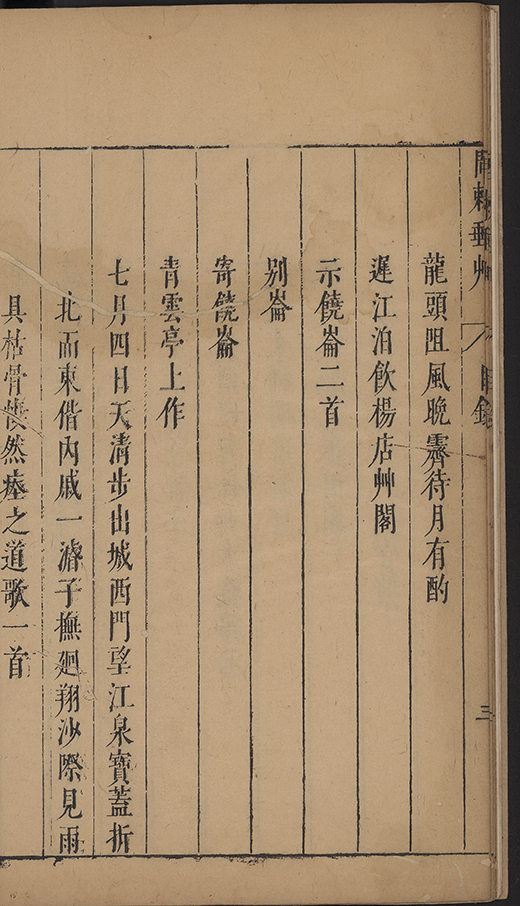 郵艸 目錄 三
龍頭阻風晚霽待月有酌
遲江泊飲楊店艸閣
示饒崙二首
別崙
寄饒崙
青雲亭上作
七月四日天清步出城西門望江泉寶蓋折
北而東偕內戚一濬子撫廻翔沙際見雨
具枯骨悽然瘞之道歌一首